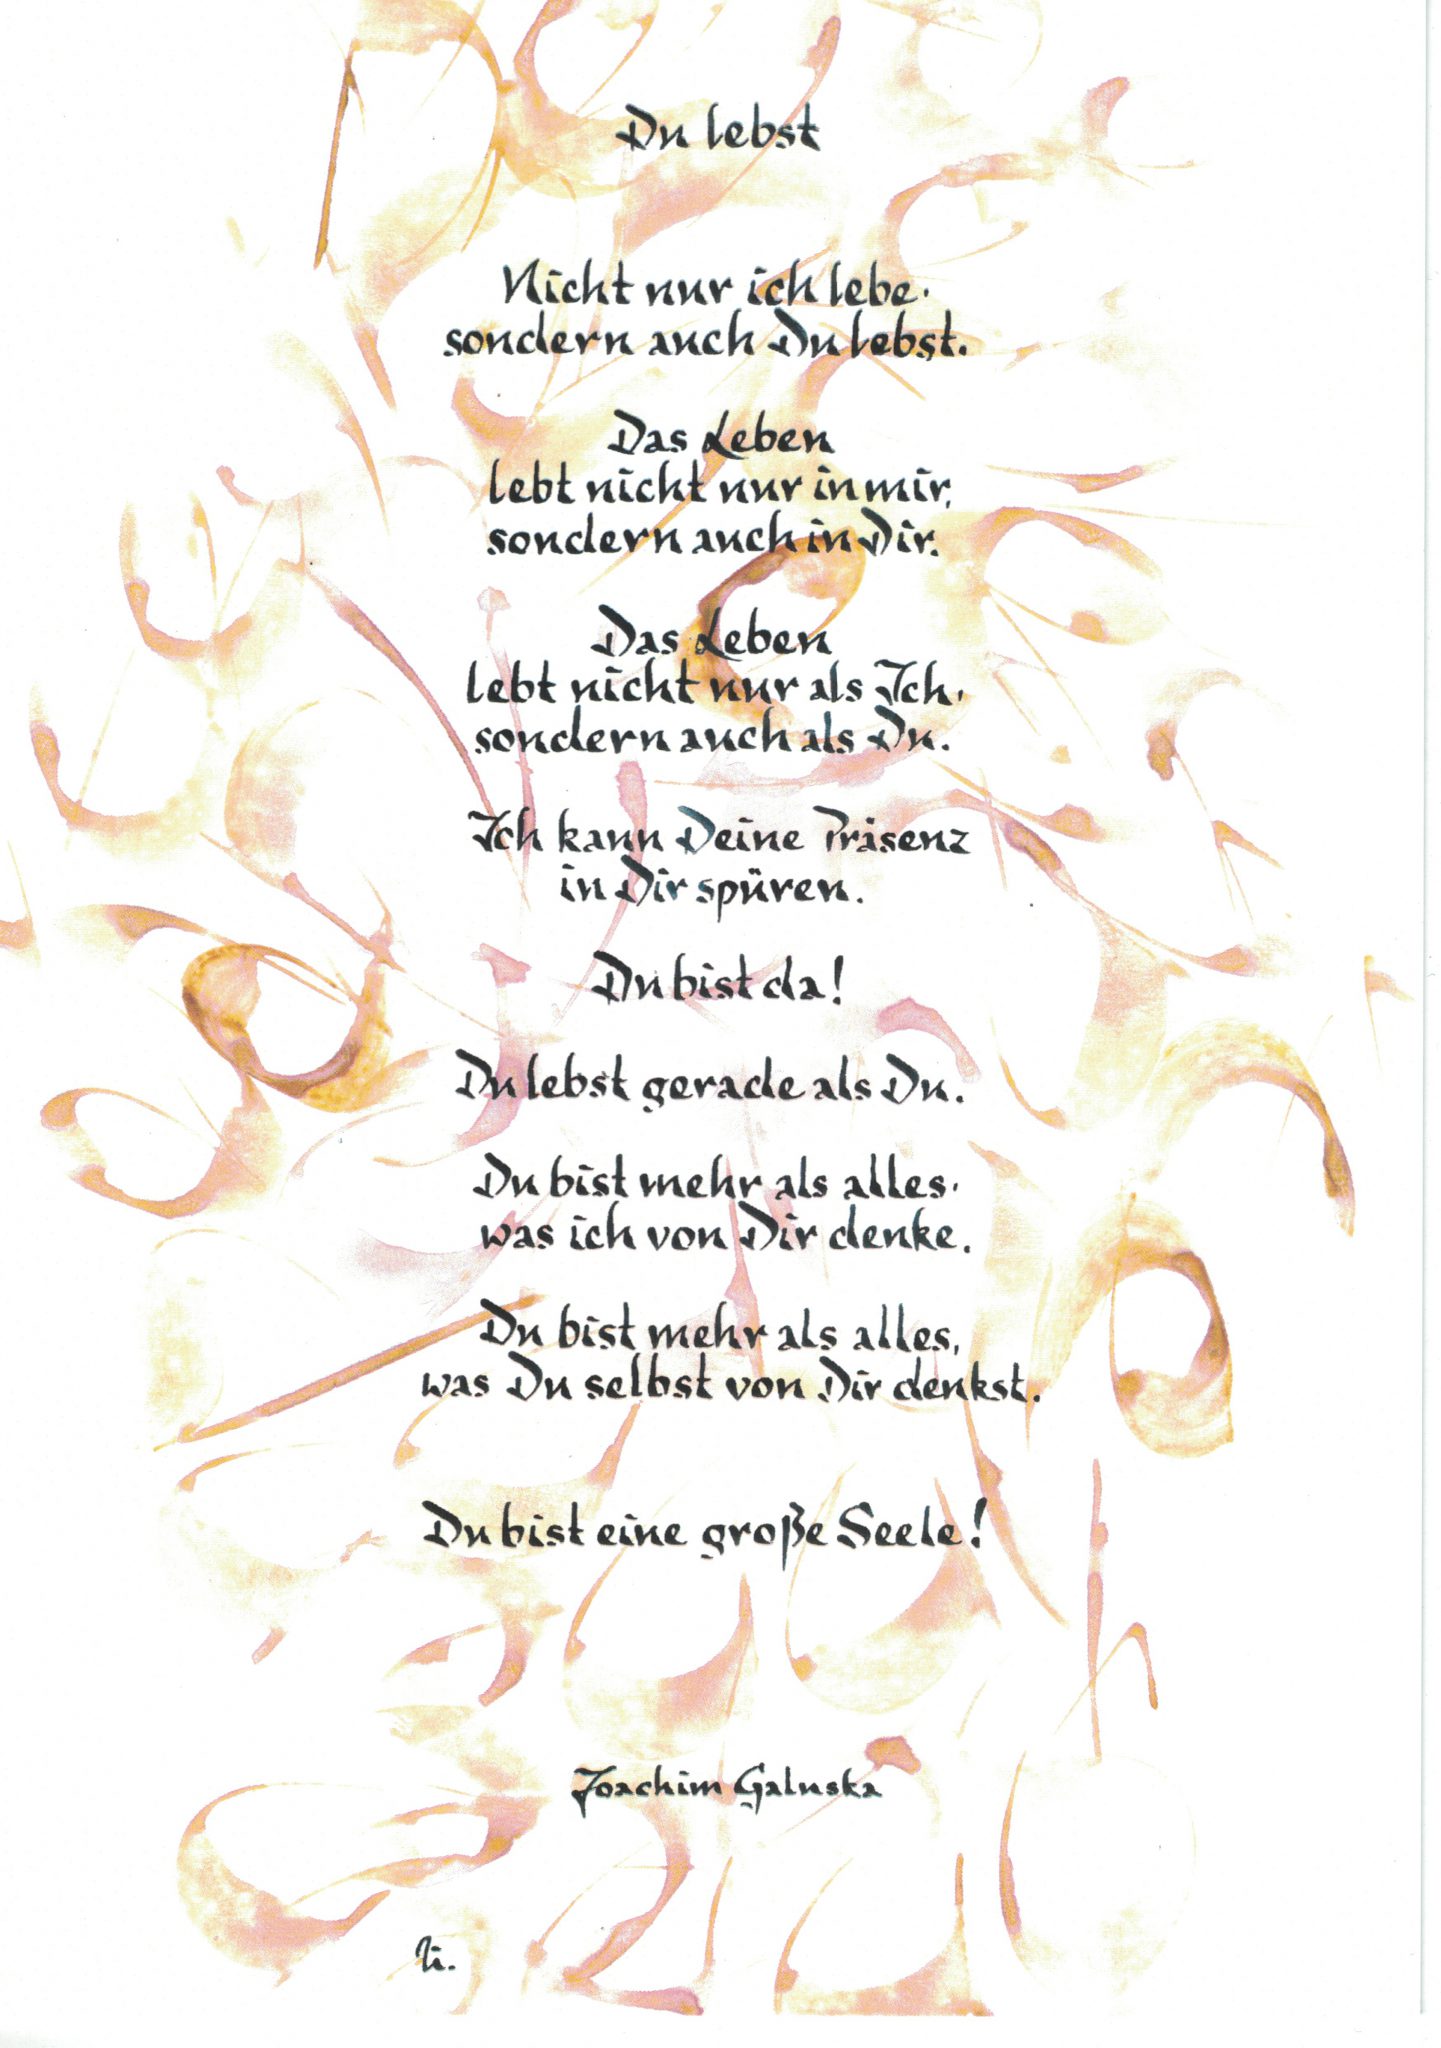 Du lebst
Nicht nur ich lebe,
sondern auch Du lebst.
Das Leben
lebt nicht nur in mir,
sondern auch in Dir.
Das Leben
lebt nicht nur als Ich,
sondern auch als Du.
Ich kann Deine Präsenz
in Dir spüren.
Du bist da!
Du lebst gerade als Du.
Du bist mehr als alles,
was ich von Dir denke.
Du bist mehr als alles,
was Du selbst von Dir denkst.
Du bist eine große Seele!
Joachim Galuska